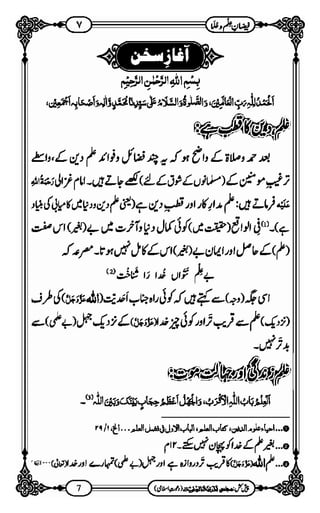 فیضانِ علم و علما
۷
آغازِ سخن
بِسْمِ اللہِ الرَّحْمٰنِ الرَّحِیْمِ
اَلْحَمْدُ لِلّٰہِ رَبِّ الْعَالَمِیْنَ، وَالصَّلٰوۃُ وَالسَّلَامُ عَلٰی سَیِّدِنَا مُحَمَّدٍ وَّاٰلِہٖ وَاَصْحَابِہٖ اَجْمَعِیْنَ.
علم دین کا قطب ہے:
بعد حمد و صلاۃ کے واضح ہو کہ یہ چند فضائل و فوائد علمِ دین کے، واسطے
ترغیبِ مومنین کے (مسلمانوں کے شوق کے لئے) لکھے جاتے ہیں۔ امام غزالی رَحْمَۃُ اللہِ
عَلَیْہِ فرماتے ہیں: علم مدارِ کار اور قطبِ دین ہے (یعنی علم دین و دنیا میں کامیابی کی بنیاد
ہے)۔ (1) فی الواقع (حقیقت میں) کوئی کمال دنیا و آخرت میں بے (بغیر) اس صفت
(علم) کے حاصل اور ایمان بے (بغیر) اس کے کامل نہیں ہوتا۔ مصرعہ کہ
بے عِلم نَتَواں خُدا را شَناخْت (2)
اسی جگہ سے (وجہ) کہتے ہیں کہ کوئی راہ جنابِ اَحَدِیَّت (اللہ عَزَّوَجَلَّ) کی طرف
(نزدیک) علم سے قریب تر اور کوئی چیز خدا (عَزَّوَجَلَّ) کے نزدیک جہل (بے علمی) سے
بدتر نہیں۔
علم زندگی اور جہالت موت:
اَلْعِلْمُ بَابُ اللہِ الْاَقْرَبُ، وَالْجَھْلُ اَعْظَمُ حِجَابٍ بَیْنَکَ وَبَیْنَ اللہِ (3)۔
1 ... احیاء علوم الدین، کتاب العلم، الباب الاول فی فضل العلم ... الخ، ۱/ ۲۹
2 ... بغیر علم کے خدا کو پہچان نہیں سکتے۔ ۱۲م
3 ... علم اللہ (عَزَّوَجَلَّ) کا قریب تر دروازہ ہے اور جہل (بے علمی) تمہارے اور خدا (تعالیٰ)
7